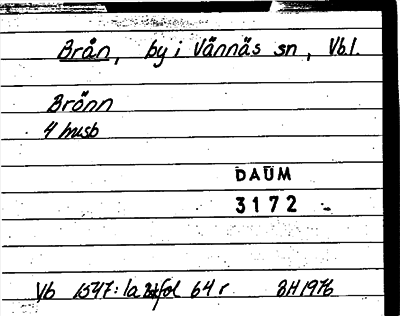 Brån, by i Vännäs sn, Vbl.
Brönn
4 husb
DAUM
3172
Vb 1547: 1a fol 64 r BH 1976